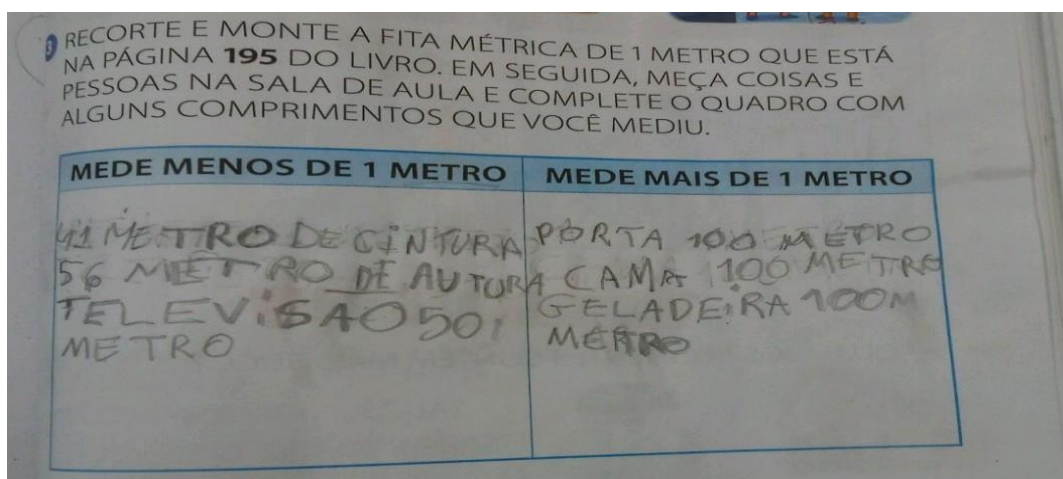 3 RECORTE E MONTE A FITA MÉTRICA DE 1 METRO QUE ESTÁ
NA PÁGINA 195 DO LIVRO. EM SEGUIDA, MEÇA COISAS E
PESSOAS NA SALA DE AULA E COMPLETE O QUADRO COM
ALGUNS COMPRIMENTOS QUE VOCÊ MEDIU.
MEDE MENOS DE 1 METRO
41 METRO DE CINTURA
56 METRO DE AUTURA
TELEVISAO 50
METRO
MEDE MAIS DE 1 METRO
PORTA 100 METRO
CAMA 100 METRO
GELADEIRA 100M
METRO